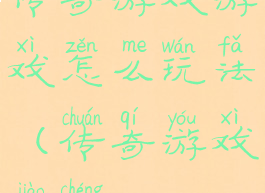 传奇游戏游
xì zěn me wán fǎ
戏怎么玩法
chuán qí yóu xì
（传奇游戏
jiào chéng